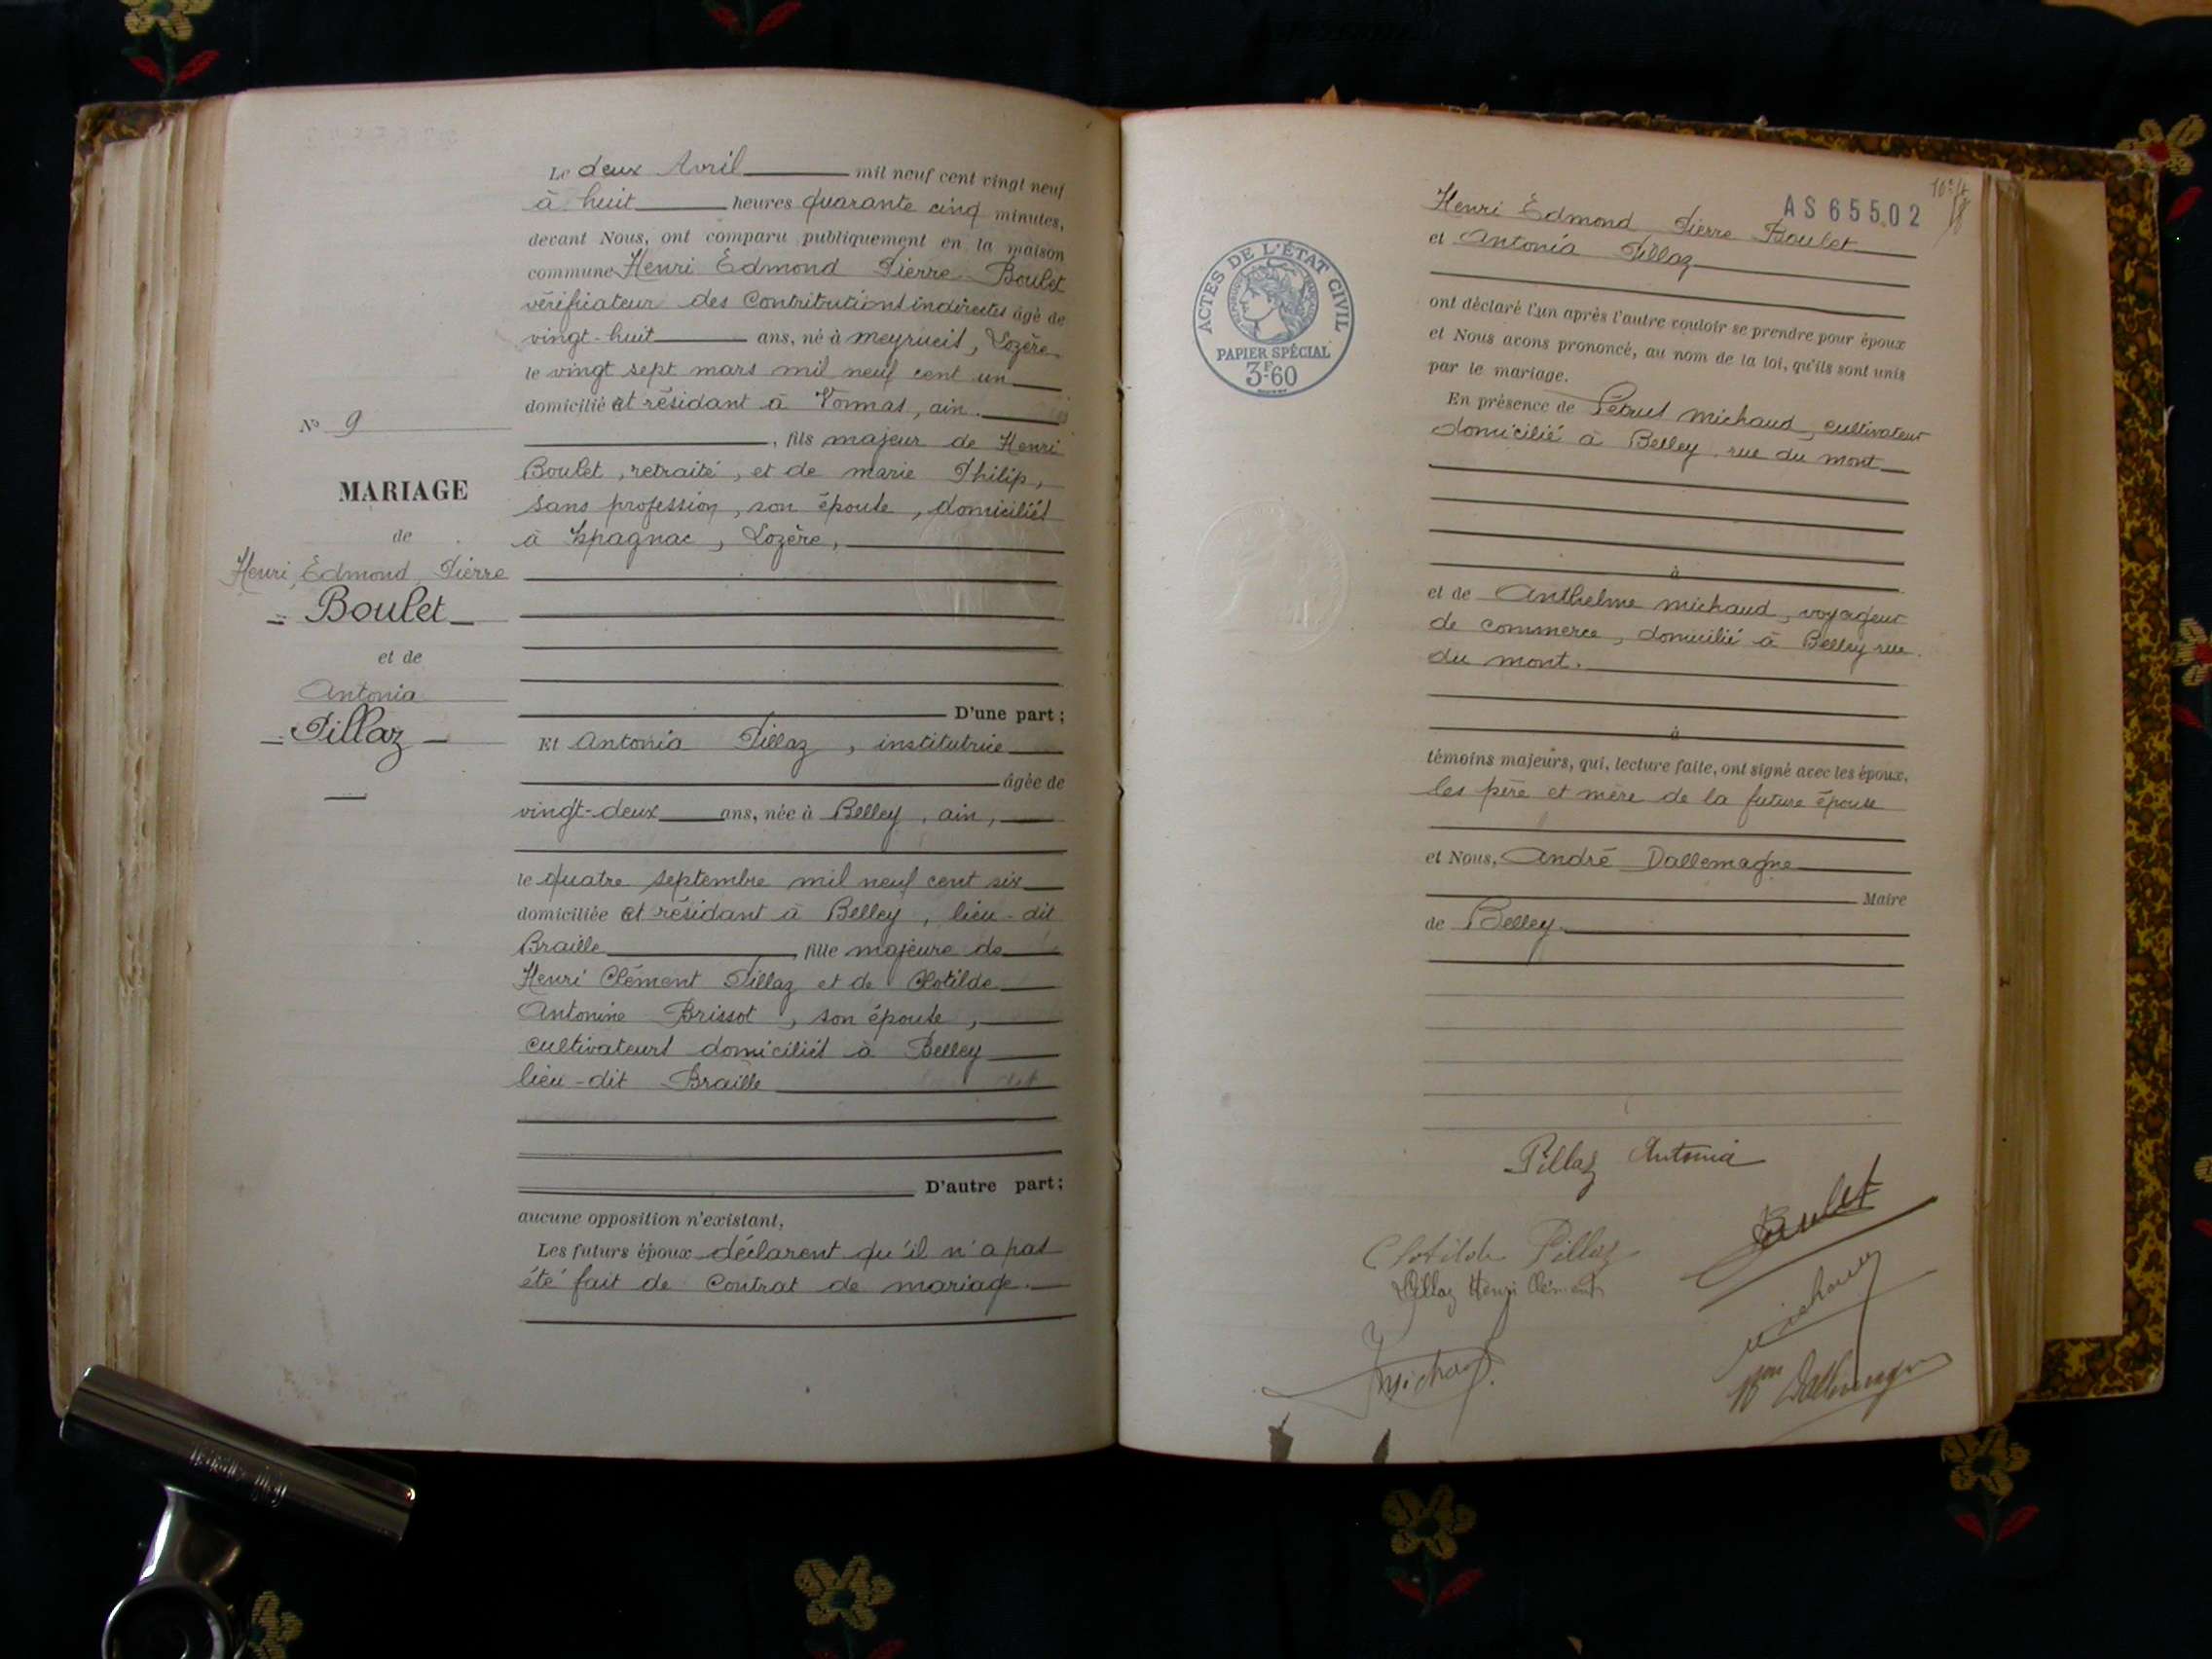 Le deux Avril mil neuf cent vingt neuf
à huit heures quarante cinq minutes,
devant Nous, ont comparu publiquement en la maison
commune Henri Edmond Pierre Boulet
vérificateur des Contributions indirectes âgé de
vingt-huit ans, né à Meyrueis, Lozère
le vingt sept mars mil neuf cent un
domicilié et résidant à Vonnas, ain.
, fils majeur de Henri
Boulet, retraité, et de marie Philip,
sans profession, son épouse, domiciliés
à Ispagnac, Lozère,
No 9
MARIAGE
de
Henri, Edmond, Pierre
Boulet
et de
Antonia
Pillaz
D'une part;
Et Antonia Pillaz, institutrice
âgée de
vingt-deux ans, née à Belley, ain,
le quatre septembre mil neuf cent six
domiciliée et résidant à Belley, lieu-dit
Braille, fille majeure de
Henri Clément Pillaz et de Clotilde
Antonine Brissot, son épouse,
cultivateurs domiciliés à Belley
lieu-dit Braille
D'autre part;
aucune opposition n'existant,
Les futurs époux déclarent qu'il n'a pas
été fait de Contrat de mariage.
AS 65502
ACTES DE L'ÉTAT CIVIL
RÉPUBLIQUE FRANÇAISE
PAPIER SPÉCIAL
3F.60
Henri Edmond Pierre Boulet
et Antonia Pillaz
ont déclaré l'un après l'autre vouloir se prendre pour époux
et Nous avons prononcé, au nom de la loi, qu'ils sont unis
par le mariage.
En présence de Pétrus Michaud, cultivateur
domicilié à Belley, rue du mont
à
et de Anthelme Michaud, voyageur
de commerce, domicilié à Belley rue
du mont.
à
témoins majeurs, qui, lecture faite, ont signé avec les époux,
les père et mère de la future épouse
et Nous, André Dallemagne
Maire
de Belley.
Pillaz Antonia
Boulet
Clotilde Pillaz
Pillaz Henri Clément
Michaud
Michaud
Bon Dallemagne